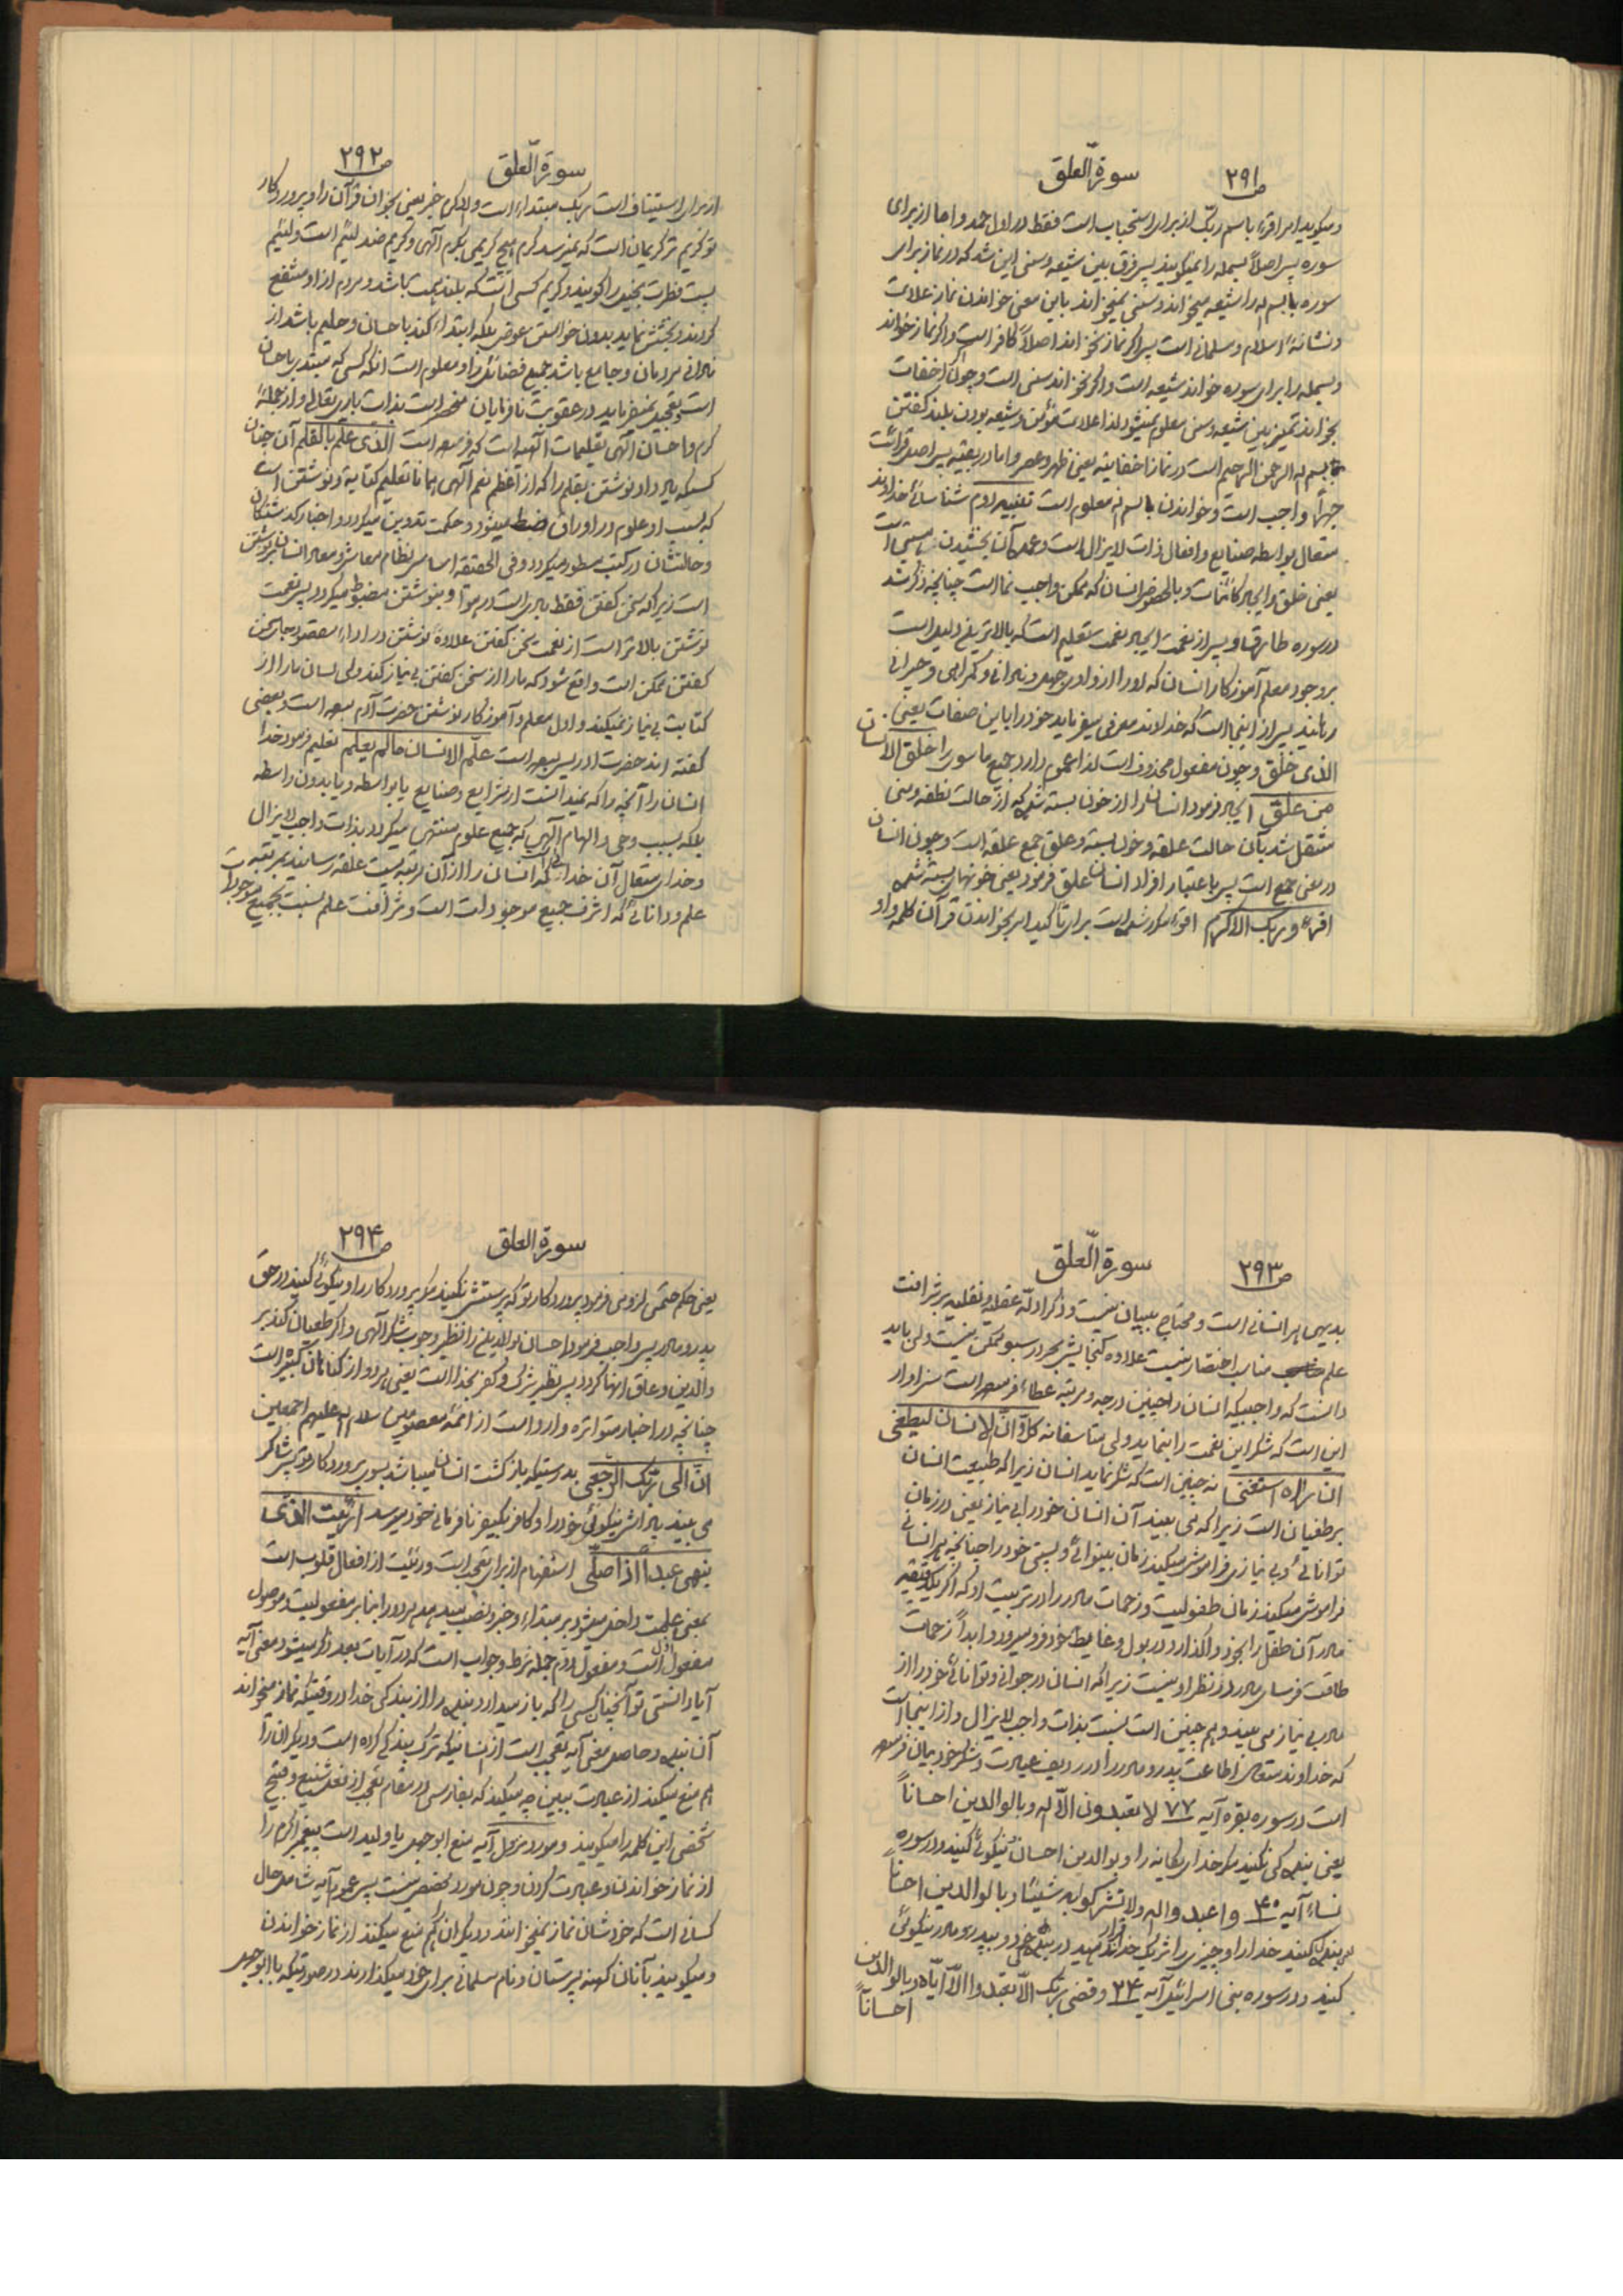 ص ۲۹۱ سورة العلق
و میگوید امر اقرء باسم ربک از برای استحباب است فقط در اول حمد و اما از برای
سوره پس اصلاً بسمله را نمیگویند پس فرق بین شیعه و سنی این شد که در نماز برای
سوره بسم اله را شیعه میخواند و سنی نمیخواند باین معنی خواندن نماز علامت
و نشانهٔ اسلام و مسلمانی است پس اگر نماز نخواند اصلاً کافر است و اگر نماز خواند
و بسمله را برای سوره خواند شیعه است و اگر نخواند سنی است و چون اخفات
بخواند تمیز بین شیعه و سنی معلوم نمیشود لذا علامت مؤمن و شیعه بودن بلند گفتن
بسم اله الرحمن الرحیم است در نماز اخفاتیه یعنی ظهر و عصر و اما در بقیه پس اصل قرائت
جهراً واجب است و خواندن باسم اله معلوم است تفسیر دوم شناسائی خداوند
متعال بواسطه صنایع و افعال ذات لایزال است و عمده آن بخشیدن هستی است
یعنی خلق و ایجاد کائنات و بالخصوص انسان که ممکن واجب نما است چنانچه ذکر شد
در سوره طارق و پس از نعمت ایجاد نعمت تعلیم است که بالاترین دلیل است
بر وجود معلم آموزگار انسان که او را از وادی جهل و نادانی و گمراهی و حیرانی
رهانید پس از اینجا است که خداوند معرفی میفرماید خود را باین صفات یعنی
الذی خلق و چون مفعول محذوف است لذا عموم دارد جمیع ما سوی را خلق الانسان
من علق ایجاد فرمود انسان را از خون بسته شده که از حالت نطفه و منی
منتقل شد بآن حالت علقه و خون بسته و علق جمع علقه است و چون انسان
در معنی جمع است پس باعتبار افراد انسان علق فرمود یعنی خونهای بسته شده
اقرء و ربک الاکرم اقرء مکرر شده است برای تأکید امر بخواندن قرآن کلمه واو
سورة العلق ص ۲۹۲
از برای استیناف است ربک مبتداء است و الاکرم خبر یعنی بخوان قرآن را و پروردگار
تو کریم تر کریمان است که نمیرسد کرم هیچ کریمی بکرم الهی و کریم ضد لئیم است و لئیم
پست فطرت بخیل را گویند و کریم کسی است که بلند همت باشد و مردم از او منتفع
گردند و بخشش نماید بدون خواستن عوض بلکه ابتداء کند باحسان و حلیم باشد از
نادانی مردمان و جامع باشد جمیع فضائل را و معلوم است آنکه کسی که مبتدی باحسان
است و تعجیل نمیفرماید در عقوبت نافرمایان منحصر است بذات باری تعالی و از جملهٔ
کرم و احسان الهی تعلیمات الهیه است که فرموده است الذی علم بالقلم آن چنان
کسیکه یاد داد نوشتن بقلم را که از اعظم نعم الهی همانا تعلیم کتابة و نوشتن است
که بسبب او علوم در اوراق ضبط میشود و حکمت تدوین میگردد و اخبار گذشتگان
و حالتشان در کتب مسطور میگردد و فی الحقیقه اساس نظام معاش و معاد انسان بر نوشتن
است زیرا که سخن گفتن فقط باد هوا است و بنوشتن مضبوط میگردد پس نعمت
نوشتن بالاتر است از نعمت سخن گفتن علاوه نوشتن در اداء مقصود بجای سخن
گفتن ممکن است واقع شود که ما را از سخن گفتن بی نیاز کند ولی لسان ما را از
کتابت بی نیاز نمیکند و اول معلم و آموزگار نوشتن حضرت آدم بوده است و بعضی
گفته اند حضرت ادریس بوده است علّم الانسان مالم یعلم تعلیم فرمود خدا
انسان را آنچه را که نمیدانست از شرایع و صنایع یا بواسطه و یا بدون واسطه
بلکه بسبب وحی و الهام الهی که جمیع علوم منتهی میگردد بذات واجب لایزال
و خدای متعال آن خدائی که انسان را از آن مرتبه پست علقه رسانید بمرتبه
علم و دانائی که اشرف جمیع موجودات است و شرافت علم نسبت بجمیع موجودات
ص ۲۹۳ سورة العلق
بدیهی هر انسانی است و محتاج ببیان نیست و ذکر ادلّه عقلیه و نقلیه بر شرافت
علم مناسب اختصار نیست علاوه گنجایش بحر در سبو ممکن نیست ولی باید
دانست که واجبیکه انسان را چنین درجه و مرتبه عطاء فرموده است سزاوار
این است که شکر این نعمت را بنماید ولی متأسفانه کلّا انّ الانسان لیطغی
ان رءاه استغنی نه چنین است که شکر نماید انسان زیرا که طبیعت انسان
بر طغیان است زیرا که می بیند آن انسان خود را بی نیاز یعنی در زمان
توانائی و بی نیازی فراموش میکند زمان بینوائی و پستی خود را چنانچه هر انسانی
فراموش میکند زمان طفولیت و زحمات مادر را در تربیت او که اگر یکدقیقه
مادر آن طفل را بخود واگذارد در بول و غایط خود فرو میرود و ابداً زحمات
طاقت فرسای مادر در نظر او نیست زیرا که انسان در جوانی و توانائی خود را از
مادر بی نیاز می بیند و هم چنین است نسبت بذات واجب لایزال و از اینجا است
که خداوند متعال اطاعت پدر و مادر را در ردیف عبادت و شکر خود بیان فرموده
است در سوره بقره آیه ۷۷ لا تعبدون الاّ اله و بالوالدین احساناً
یعنی بنده گی نکنید مگر خدای یگانه را و بوالدین احسان نیکوئی کنید و در سوره
نساء آیه ۴۰ و اعبدوا اله و لا تشرکوا به شیئاً و بالوالدین احساناً
بنده گی کنید خدا را و چیزی را شریک خدا قرار ندهید در بنده گی و بپدر و مادر نیکوئی
کنید و در سوره بنی اسرائیل آیه ۲۴ و قضی ربک الاّ تعبدوا الاّ ایّاه و بالوالدین
احساناً
سورة العلق ص ۲۹۴
یعنی حکم حتمی لزومی فرمود پروردگار تو که پرستش نکنید مگر پروردگار را و نیکوئی کنید در حق
پدر و مادر پس واجب فرمود احسان والدین را نظیر وجوب شکر الهی و اگر طغیان کند بر
والدین و عاق آنها گردد پس نظیر شرک و کفر بخدا است یعنی هر دو از گناهان کبیره است
چنانچه در اخبار متواتره وارد است از ائمهٔ معصومین سلام اله علیهم اجمعین
انّ الی ربک الرجعی بدرستیکه بازگشت انسان میباشد بسوی پروردگار تو پس شاکر
می بیند پاداش نیکوئی خود را و کافر بکیفر نافرمانی خود میرسد ارئیت الذی
ینهی عبداً اذا صلّی استفهام از برای تعجب است و رئیت از افعال قلوب است
بمعنی علمت داخل میشود بر مبتداء و خبر و نصب میدهد هر دو را بنابر مفعولیت و موصول
مفعول اول است و مفعول دوم جمله شرط و جواب است که در آیات بعد ذکر میشود معنی آیه
آیا دانستی تو آنچنان کسی را که باز میدارد بنده را از بندگی خدا در وقتیکه نماز میخواند
آن بنده و حاصل معنی آیه تعجب است از انسانیکه ترک بندگی کرده است و دیگران را
هم منع میکند از عبادت ببین چه میکند که بفارسی در مقام تعجب از فعل شنیع و قبیح
شخصی این کلمه را میگویند و مورد نزول آیه منع ابوجهل یا ولید است پیغمبر اکرم را
از نماز خواندن و عبادت کردن و چون مورد مخصص نیست پس عموم آیه شامل حال
کسانی است که خودشان نماز نمیخوانند و دیگران را هم منع میکنند از نماز خواندن
و میگویند بآنان کهنه پرستان و نام مسلمانی برای خود میگذارند در صورتیکه با ابوجهل